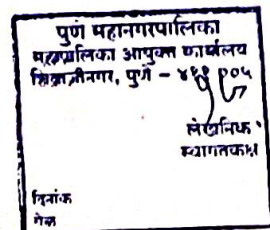 पुणे महानगरपालिका
महापालिका आयुक्त कार्यालय
शिवाजीनगर, पुणे - ४११ ००५
लेखनिक
स्वागतकक्ष
दिनांक
वेळ